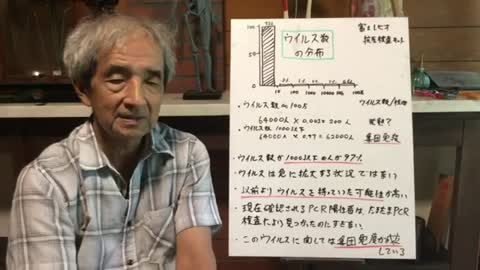 ウイルス数
の分布
富士レビオ
抗原検査キット
100
50
0
10
100
1000
10000
ウイルス数/検体
・ウイルス数 ≦ 100万
64000人 × 0.003 = 200人
・ウイルス数 1000以下
64000人 × 0.97 = 62000人
集団免疫
・ウイルス数が1000以下の人が97%
・ウイルスは急に拡大する状況ではない
・以前よりウイルスを持っていた可能性が高い
・現在確認されるPCR陽性者は、たまたまPCR
検査により見つかったのにすぎない
・このウイルスに関しては集団免疫が成立
している